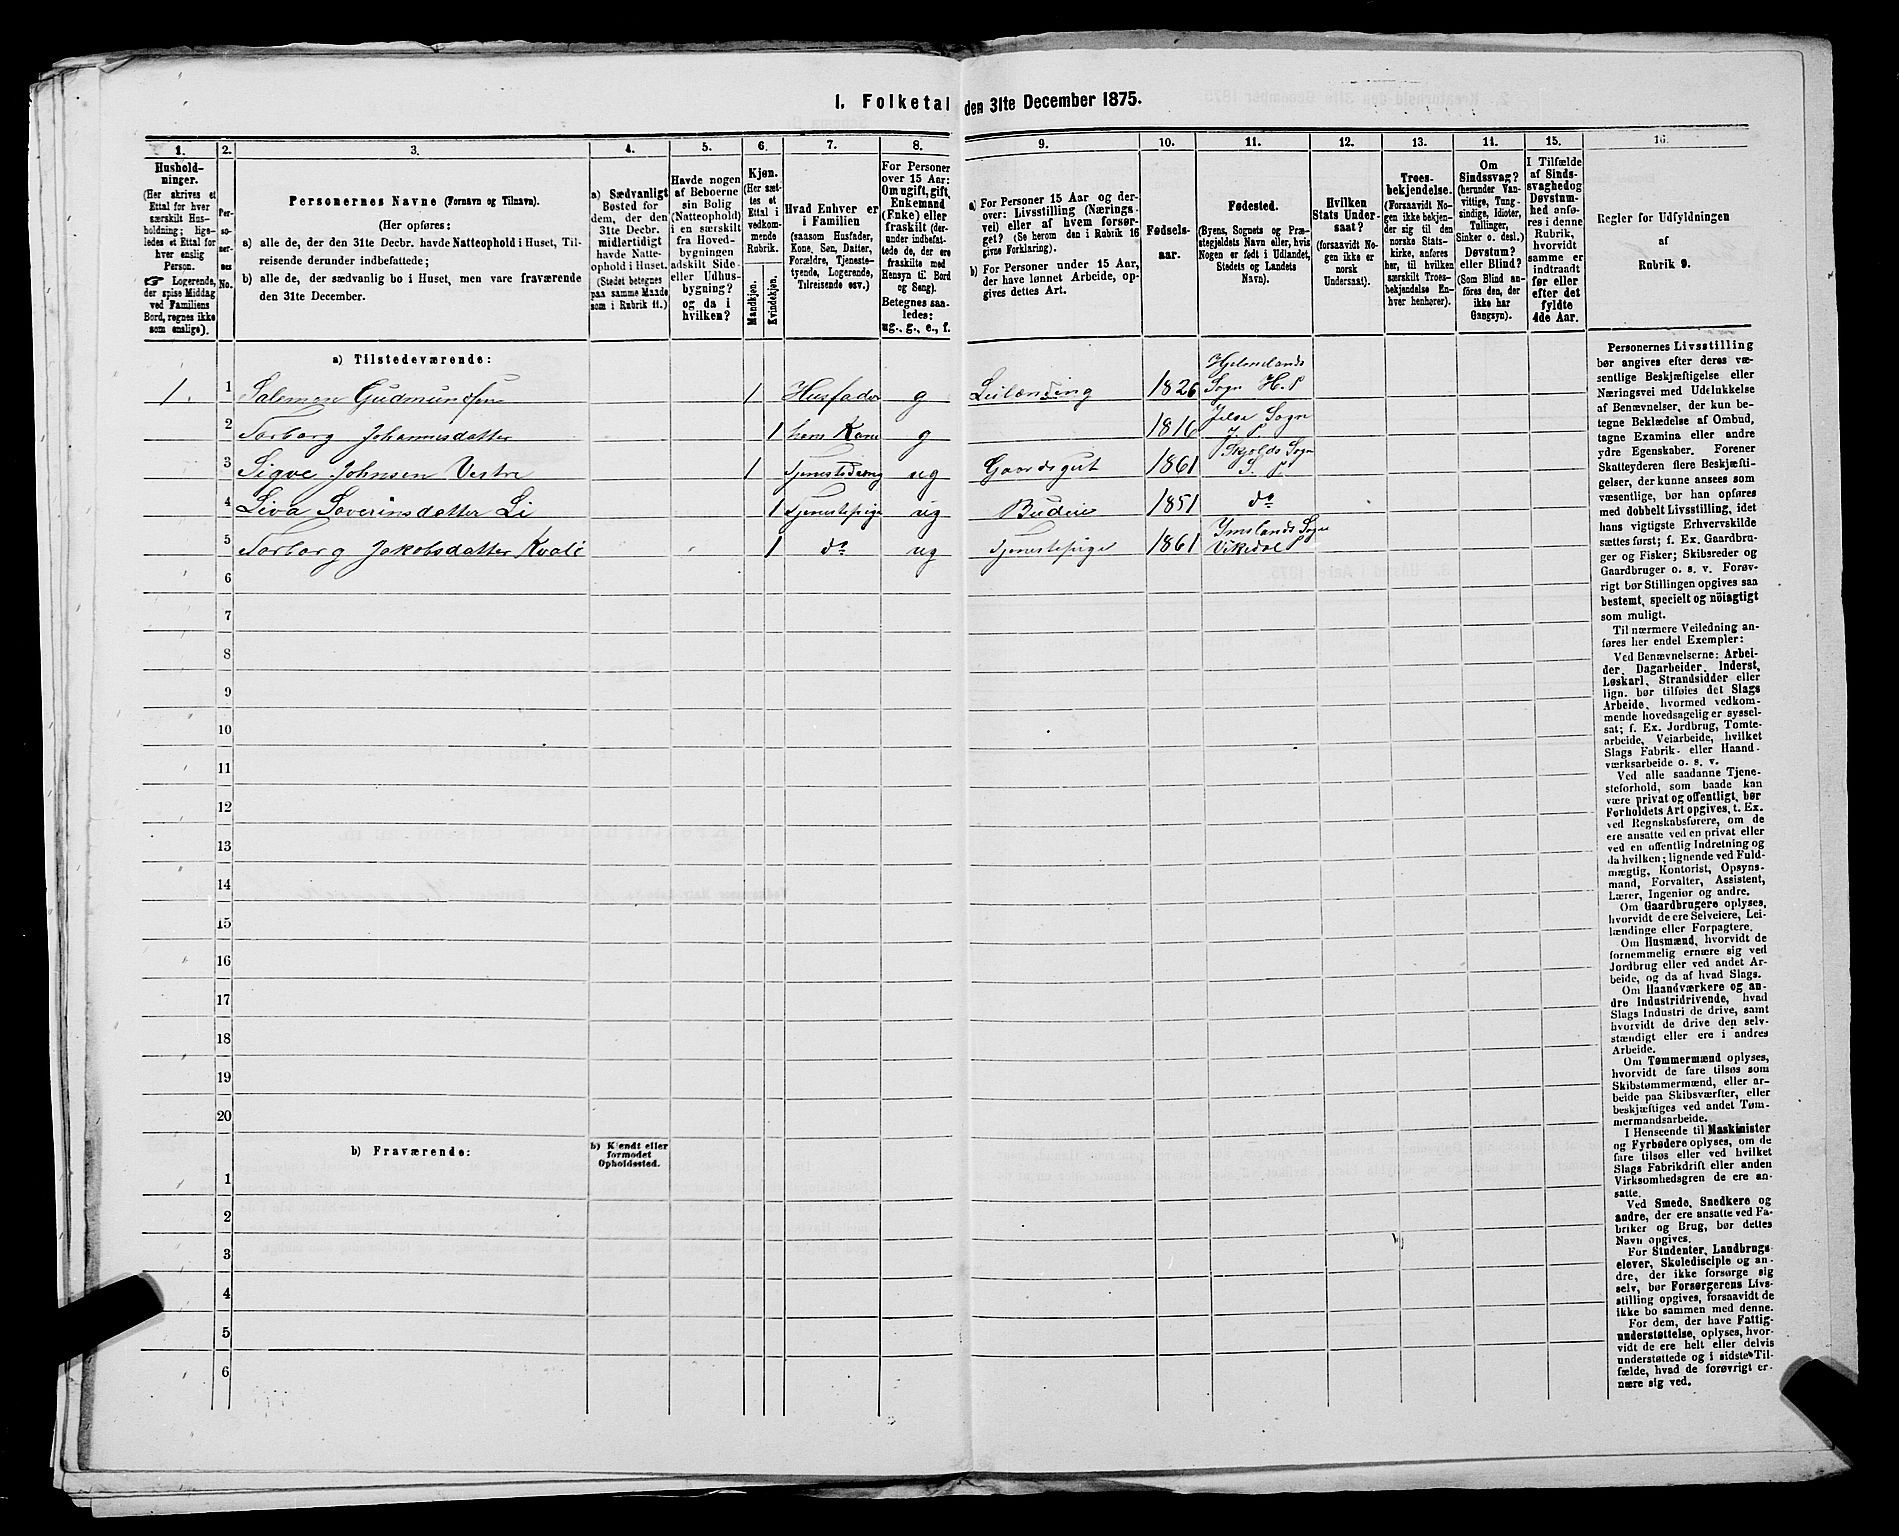 1. Folketal den 31te December 1875.
1.
Hushold-
ninger.
(Her skrives et
Ettal for hver
særskilt Hus-
holdning; lige-
ledes et Ettal for
hver enslig
Person.
☞ Logerende,
der spise Middag
ved Familiens
Bord, regnes ikke
som enslige).
2.
Per-
so-
ner-
nes
No.
3.
Personernes Navne (Fornavn og Tilnavn).
(Her opføres:
a) alle de, der den 31te Decbr. havde Natteophold i Huset, Til-
reisende derunder indbefattede;
b) alle de, der sædvanlig bo i Huset, men vare fraværende
den 31te December.
4.
a) Sædvanligt
Bosted for
dem, der den
31te Decbr.
midlertidigt
havde Natte-
ophold i Huset.
(Stedet betegnes
paa samme Maade
som i Rubrik 11.)
5.
Havde nogen
af Beboerne
sin Bolig
(Natteophold)
i en særskilt
fra Hoved-
bygningen
adskilt Side-
eller Udhus-
bygning?
og da i
hvilken?
6.
Kjøn.
(Her sæt-
tes et
Ettal i
vedkom-
mende
Rubrik.
Mandkjøn.
Kvindekjøn.
7.
Hvad Enhver er
i Familien
(saasom Husfader,
Kone, Søn, Datter,
Forældre, Tjeneste-
tyende, Logerende,
Tilreisende osv.)
8.
For Personer
over 15 Aar:
Om ugift, gift,
Enkemand
(Enke) eller
fraskilt (der-
under indbefat-
tede de, der ere
fraskilte med
Hensyn til Bord
og Seng).
Betegnes saa-
ledes:
ug., g., e., f.
9.
a) For Personer 15 Aar og der-
over: Livsstilling (Nærings-
vei) eller af hvem forsør-
get? (Se herom den i Rubrik 16
givne Forklaring).
b) For Personer under 15 Aar,
der have lønnet Arbeide, op-
gives dettes Art.
10.
Fødsels-
aar.
11.
Fødested.
(Byens, Sognets og Præ-
stegjeldets Navn eller, hvis
Nogen er født i Udlandet,
Stedets og Landets
Navn).
12.
Hvilken
Stats Under-
saat?
(forsaavidt No-
gen ikke er
norsk
Undersaat).
13.
Troes-
bekjendelse.
(Forsaavidt No-
gen ikke bekjen-
der sig til den
norske Stats-
kirke, anføres
her, til hvilken
særskilt Troes-
bekjendelse En-
hver henhører).
14.
Om
Sindssvag?
(herunder Van-
vittige, Tung-
sindige, Idioter,
Tullinger,
Sinker o. desl.)
Døvstum?
eller Blind?
(Som Blind an-
føres den, der
ikke har
Gangsyn).
15.
I Tilfælde
af Sinds-
svaghed og
Døvstum-
hed anfø-
res i denne
Rubrik,
hvorvidt
samme er
indtraadt
før eller
efter det
fyldte
4de Aar.
16.
Regler for Udfyldningen
af
Rubrik 9.
a) Tilstedeværende:
1. 1 Salemon Gudmundsen 1 Husfader g Leilænding 1826 Hjelmelands
Sogn H. P
2 Torborg Johannesdatter 1 hans Kone g 1816 Jelse Sogn
J. P.
3 Sigve Johnsen Vestre 1 Tjenestedreng ug Gaardsgut 1861 Skjolds Sogn
S. P
4 Liva Soverinsdatter Li 1 Tjenestepige ug Budeie 1851 do
5 Torborg Jakobsdatter Kvale 1 do ug Tjenestepige 1861 Ymslands Sogn
Vikedal P
6
7
8
9
10
11
12
13
14
15
16
17
18
19
20
b) Fraværende:
b) Kjendt eller
formodet
Opholdssted.
1
2
3
4
5
6
Personernes Livsstilling
bør angives efter deres væ-
sentlige Beskjæftigelse eller
Næringsvei med Udelukkelse
af Benævnelser, der kun be-
tegne Beklædelse af Ombud,
tagne Examina eller andre
ydre Egenskaber. Forener
Skatteyderen flere Beskjæfti-
gelser, der kunne ansees som
væsentlige, bør han opføres
med dobbelt Livsstilling, idet
hans vigtigste Erhvervskilde
sættes først; f. Ex. Gaardbru-
ger og Fisker; Skibsreder og
Gaardbruger o. s. v. Forøv-
rigt bør Stillingen opgives saa
bestemt, specielt og nøiagtigt
som muligt.
Til nærmere Veiledning an-
føres her endel Exempler:
Ved Benævnelserne: Arbei-
der, Dagarbeider, Inderst,
Løskarl, Strandsidder eller
lign. bør tilføies det Slags
Arbeide, hvormed vedkom-
mende hovedsagelig er syssel-
sat; f. Ex. Jordbrug, Tomte-
arbeide, Veiarbeide, hvilket
Slags Fabrik- eller Haand-
værksarbeide o. s. v.
Ved alle saadanne Tjene-
steforhold, som baade kan
være privat og offentligt, bør
Forholdets Art opgives, t. Ex.
ved Regnskabsførere, om de
ere ansatte ved en privat eller
ved en offentlig Indretning og
da hvilken; lignende ved Fuld-
mægtig, Kontorist, Opsyns-
mand, Forvalter, Assistent,
Lærer, Ingeniør og andre.
Om Gaardbrugere oplyses,
hvorvidt de ere Selveiere, Lei-
lændinge eller Forpagtere.
Om Husmænd, hvorvidt de
fornemmelig ernære sig ved
Jordbrug eller ved andet Ar-
beide, og da af hvad Slags.
Om Haandværkere og an-
dre Industridrivende, hvad
Slags Industri de drive, samt
hvorvidt de drive den selv-
stændigt eller ere i andres
Arbeide.
Om Tømmermænd oplyses,
hvorvidt de fare tilsøs som
Skibstømmermænd, eller ar-
beide paa Skibsværfter, eller
beskjæftiges ved andet Tøm-
mermandsarbeide.
I Henseende til Maskinister
og Fyrbødere oplyses, om de
fare tilsøs eller ved hvilket
Slags Fabrikdrift eller anden
Virksomhedsgren de ere an-
satte.
Ved Smede, Snedkere og
andre, der ere ansatte ved Fa-
briker og Brug, bør dettes
Navn opgives.
For Studenter, Landbrugs-
elever, Skoledisciple og an-
dre, der ikke forsørge sig
selv, bør Forsørgerens Livs-
stilling opgives, forsaavidt de
ikke bo sammen med denne.
For dem, der have Fattig-
understøttelse, oplyses, hvor-
vidt de ere helt eller delvis
understøttede og i sidste Til-
fælde, hvad de forøvrigt er-
nære sig ved.